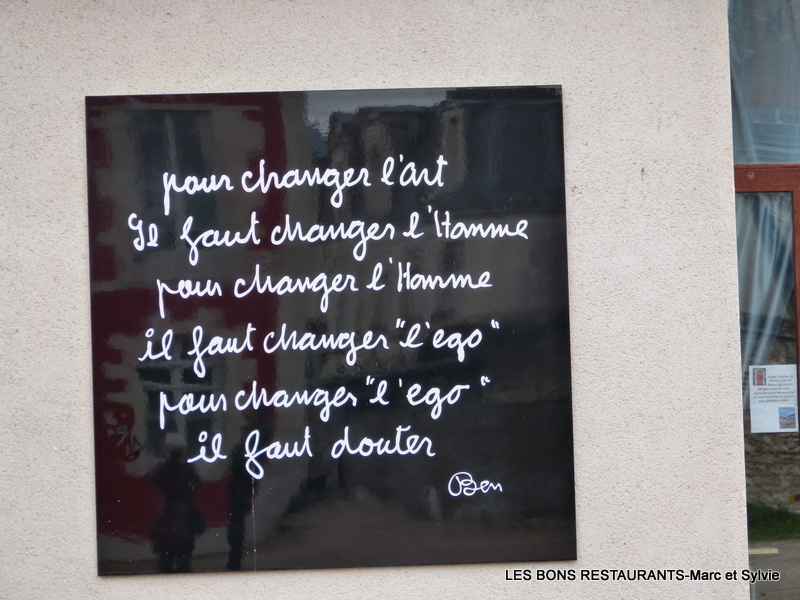 pour changer l'art
Il faut changer l'Homme
pour changer l'Homme
il faut changer "l'ego"
pour changer "l'ego"
il faut douter
Ben
LES BONS RESTAURANTS-Marc et Sylvie